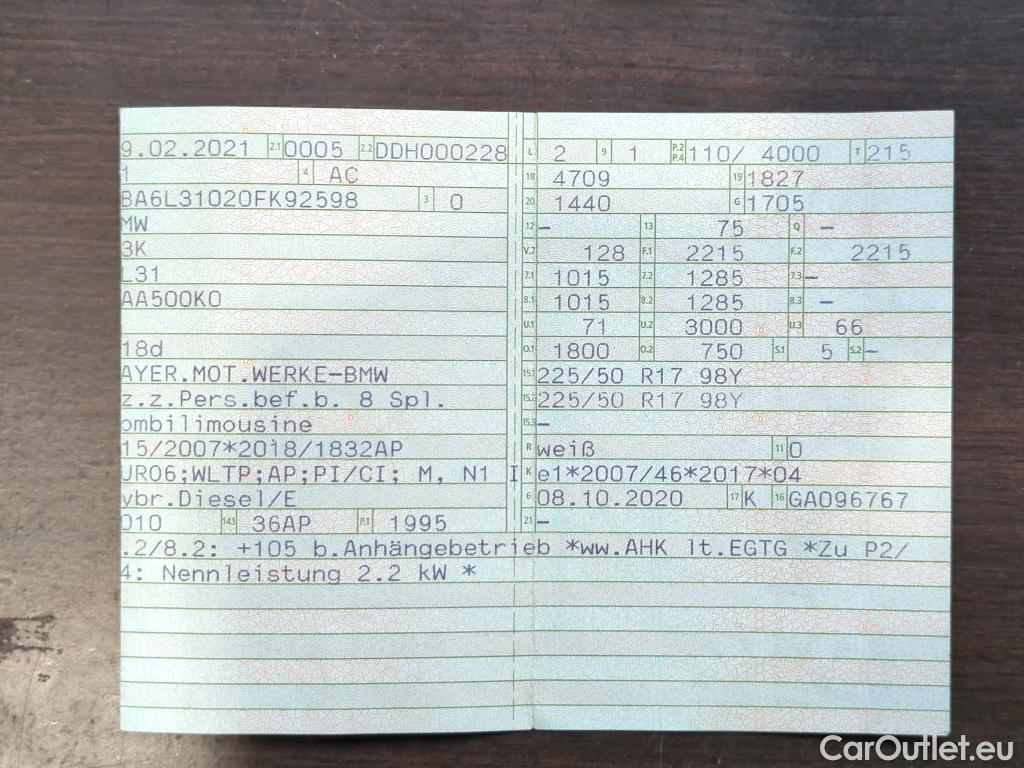 9.02.2021 2.1 0005 2.2 DDH000228
1 4 AC
BA6L31020FK92598 3 0
MW
3K
L31
AA500K0
18d
AYER.MOT.WERKE-BMW
z.z.Pers.bef.b. 8 Spl.
ombilimousine
15/2007*2018/1832AP
UR06;WLTP;AP;PI/CI; M, N1 I
vbr.Diesel/E
010 14.1 36AP P.1 1995
L 2 9 1 P.2 P.4 110/ 4000 T 215
18 4709 19 1827
20 1440 G 1705
12 – 13 75 Q –
V.7 128 F.1 2215 F.2 2215
7.1 1015 7.2 1285 7.3 –
8.1 1015 8.2 1285 8.3 –
U.1 71 U.2 3000 U.3 66
O.1 1800 O.2 750 S.1 5 S.2 –
15.1 225/50 R17 98Y
15.2 225/50 R17 98Y
15.3 –
R weiß 11 0
K e1*2007/46*2017*04
6 08.10.2020 17 K 16 GA096767
21 –
.2/8.2: +105 b.Anhängebetrieb *ww.AHK lt.EGTG *Zu P2/
4: Nennleistung 2.2 kW *
CarOutlet.eu